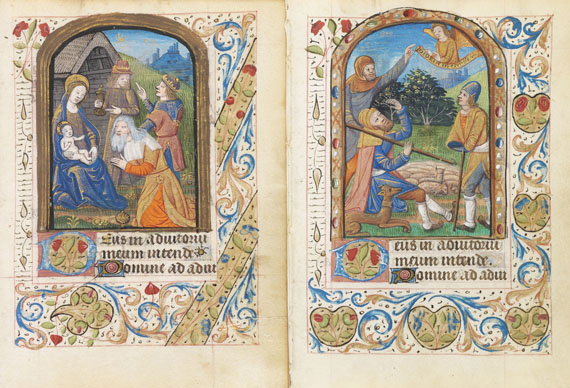 Eus in adiutoriu
meum intende
Domine ad adiu
eus in adiutoriu
meum intende.
Domine ad adiu